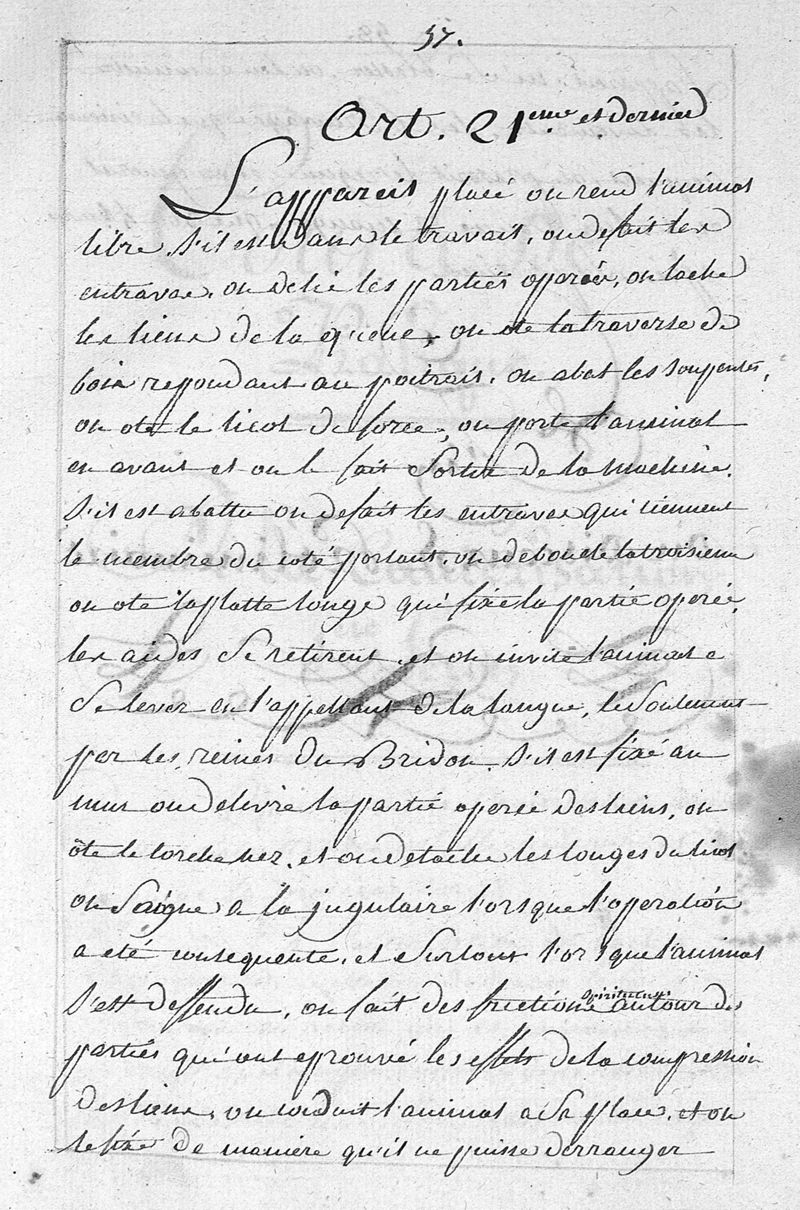 57.
Art. 21eme et dernier
L'appareil placé on rend l'animal
libre. S'il est dans le travail, on defait les
entraves, on delie les parties operée, on lache
les liens de la queue, on ote la traverse de
bois repondant au poitrail, on abat les soupentes,
on ote le licol de force, on porte l'animal
en avant et on le fait sortir de la machine.
S'il est abattu on defait les entraves qui tiennent
le membre du coté portant, on deboucle la troisieme
on ote la platte longe qui fixe la partie operée,
les aides se retirent, et on invite l'animal a
se lever en l'appellant de la langue, le soulevant
par les reines du Bridon. S'il est fixé au
mur on delivre la partie operée des liens, on
ôte le torchenez, et on detache les longes du licol
on saigne a la jugulaire lorsque l'operation
a eté consequente, et surtout lorsque l'animal
s'est deffendu, on fait des frictions spiritueuses autour des
parties qui ont eprouvé les effets de la compression
des liens, on conduit l'animal a sa place, et on
le fixe de maniere qu'il ne puisse derranger